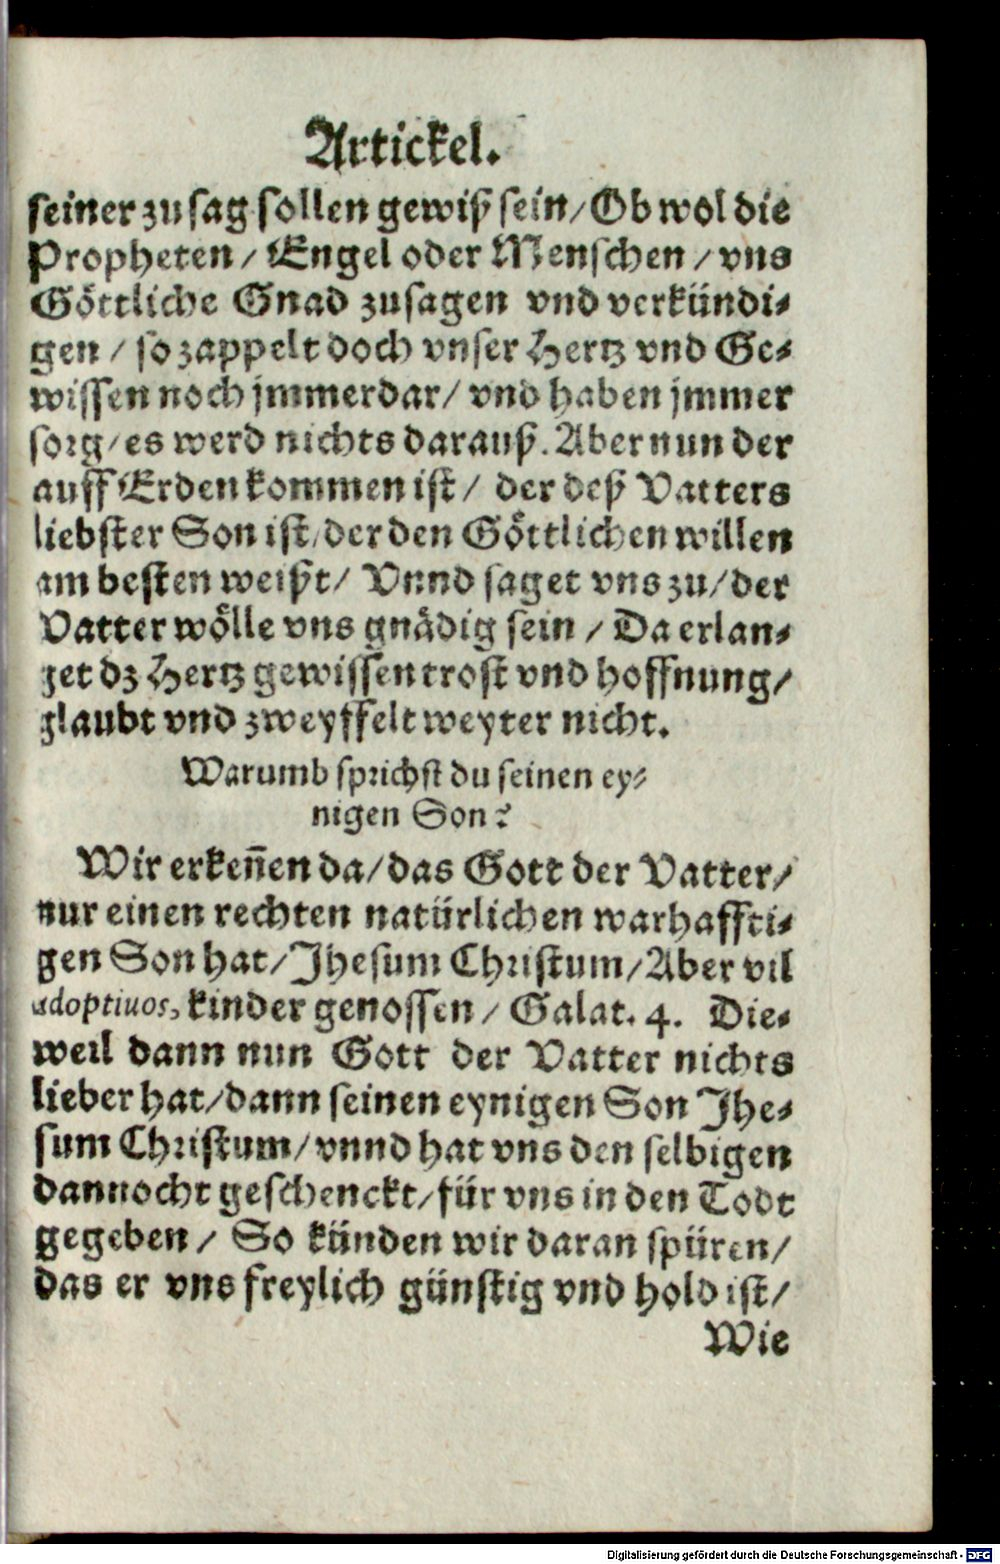 Artickel.
seiner zu sag sollen gewiß sein/ Ob wol die
Propheten/ Engel oder Menschen/ vns
Göttliche Gnad zusagen vnd verkündi-
gen/ so zappelt doch vnser Hertz vnd Ge-
wissen noch jmmerdar/ vnd haben jmmer
sorg/ es werd nichts darauß. Aber nun der
auff Erden kommen ist/ der deß Vatters
liebster Son ist/ der den Göttlichen willen
am besten weißt/ Vnnd saget vns zu/ der
Vatter wölle vns gnädig sein/ Da erlan-
get dz Hertz gewissen trost vnd hoffnung/
glaubt vnd zweyffelt weyter nicht.
Warumb sprichst du seinen ey-
nigen Son?
Wir erkeñen da/ das Gott der Vatter/
nur einen rechten natürlichen warhaffti-
gen Son hat/ Jhesum Christum/ Aber vil
adoptiuos, kinder genossen/ Galat. 4. Die-
weil dann nun Gott der Vatter nichts
lieber hat/ dann seinen eynigen Son Jhe-
sum Christum/ vnnd hat vns den selbigen
dannocht geschenckt/ für vns in den Todt
gegeben/ So künden wir daran spüren/
das er vns freylich günstig vnd hold ist/
Wie
Digitalisierung gefördert durch die Deutsche Forschungsgemeinschaft - DFG